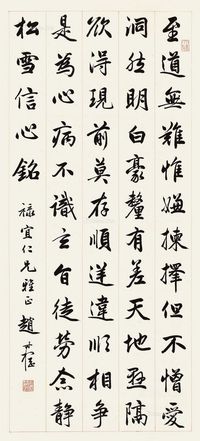 至道無難惟嫌揀擇但不憎愛
洞然明白豪釐有差天地懸隔
欲得現前莫存順逆違順相爭
是為心病不識玄旨徒勞念静
松雪信心銘
祿宜仁兄雅正 趙